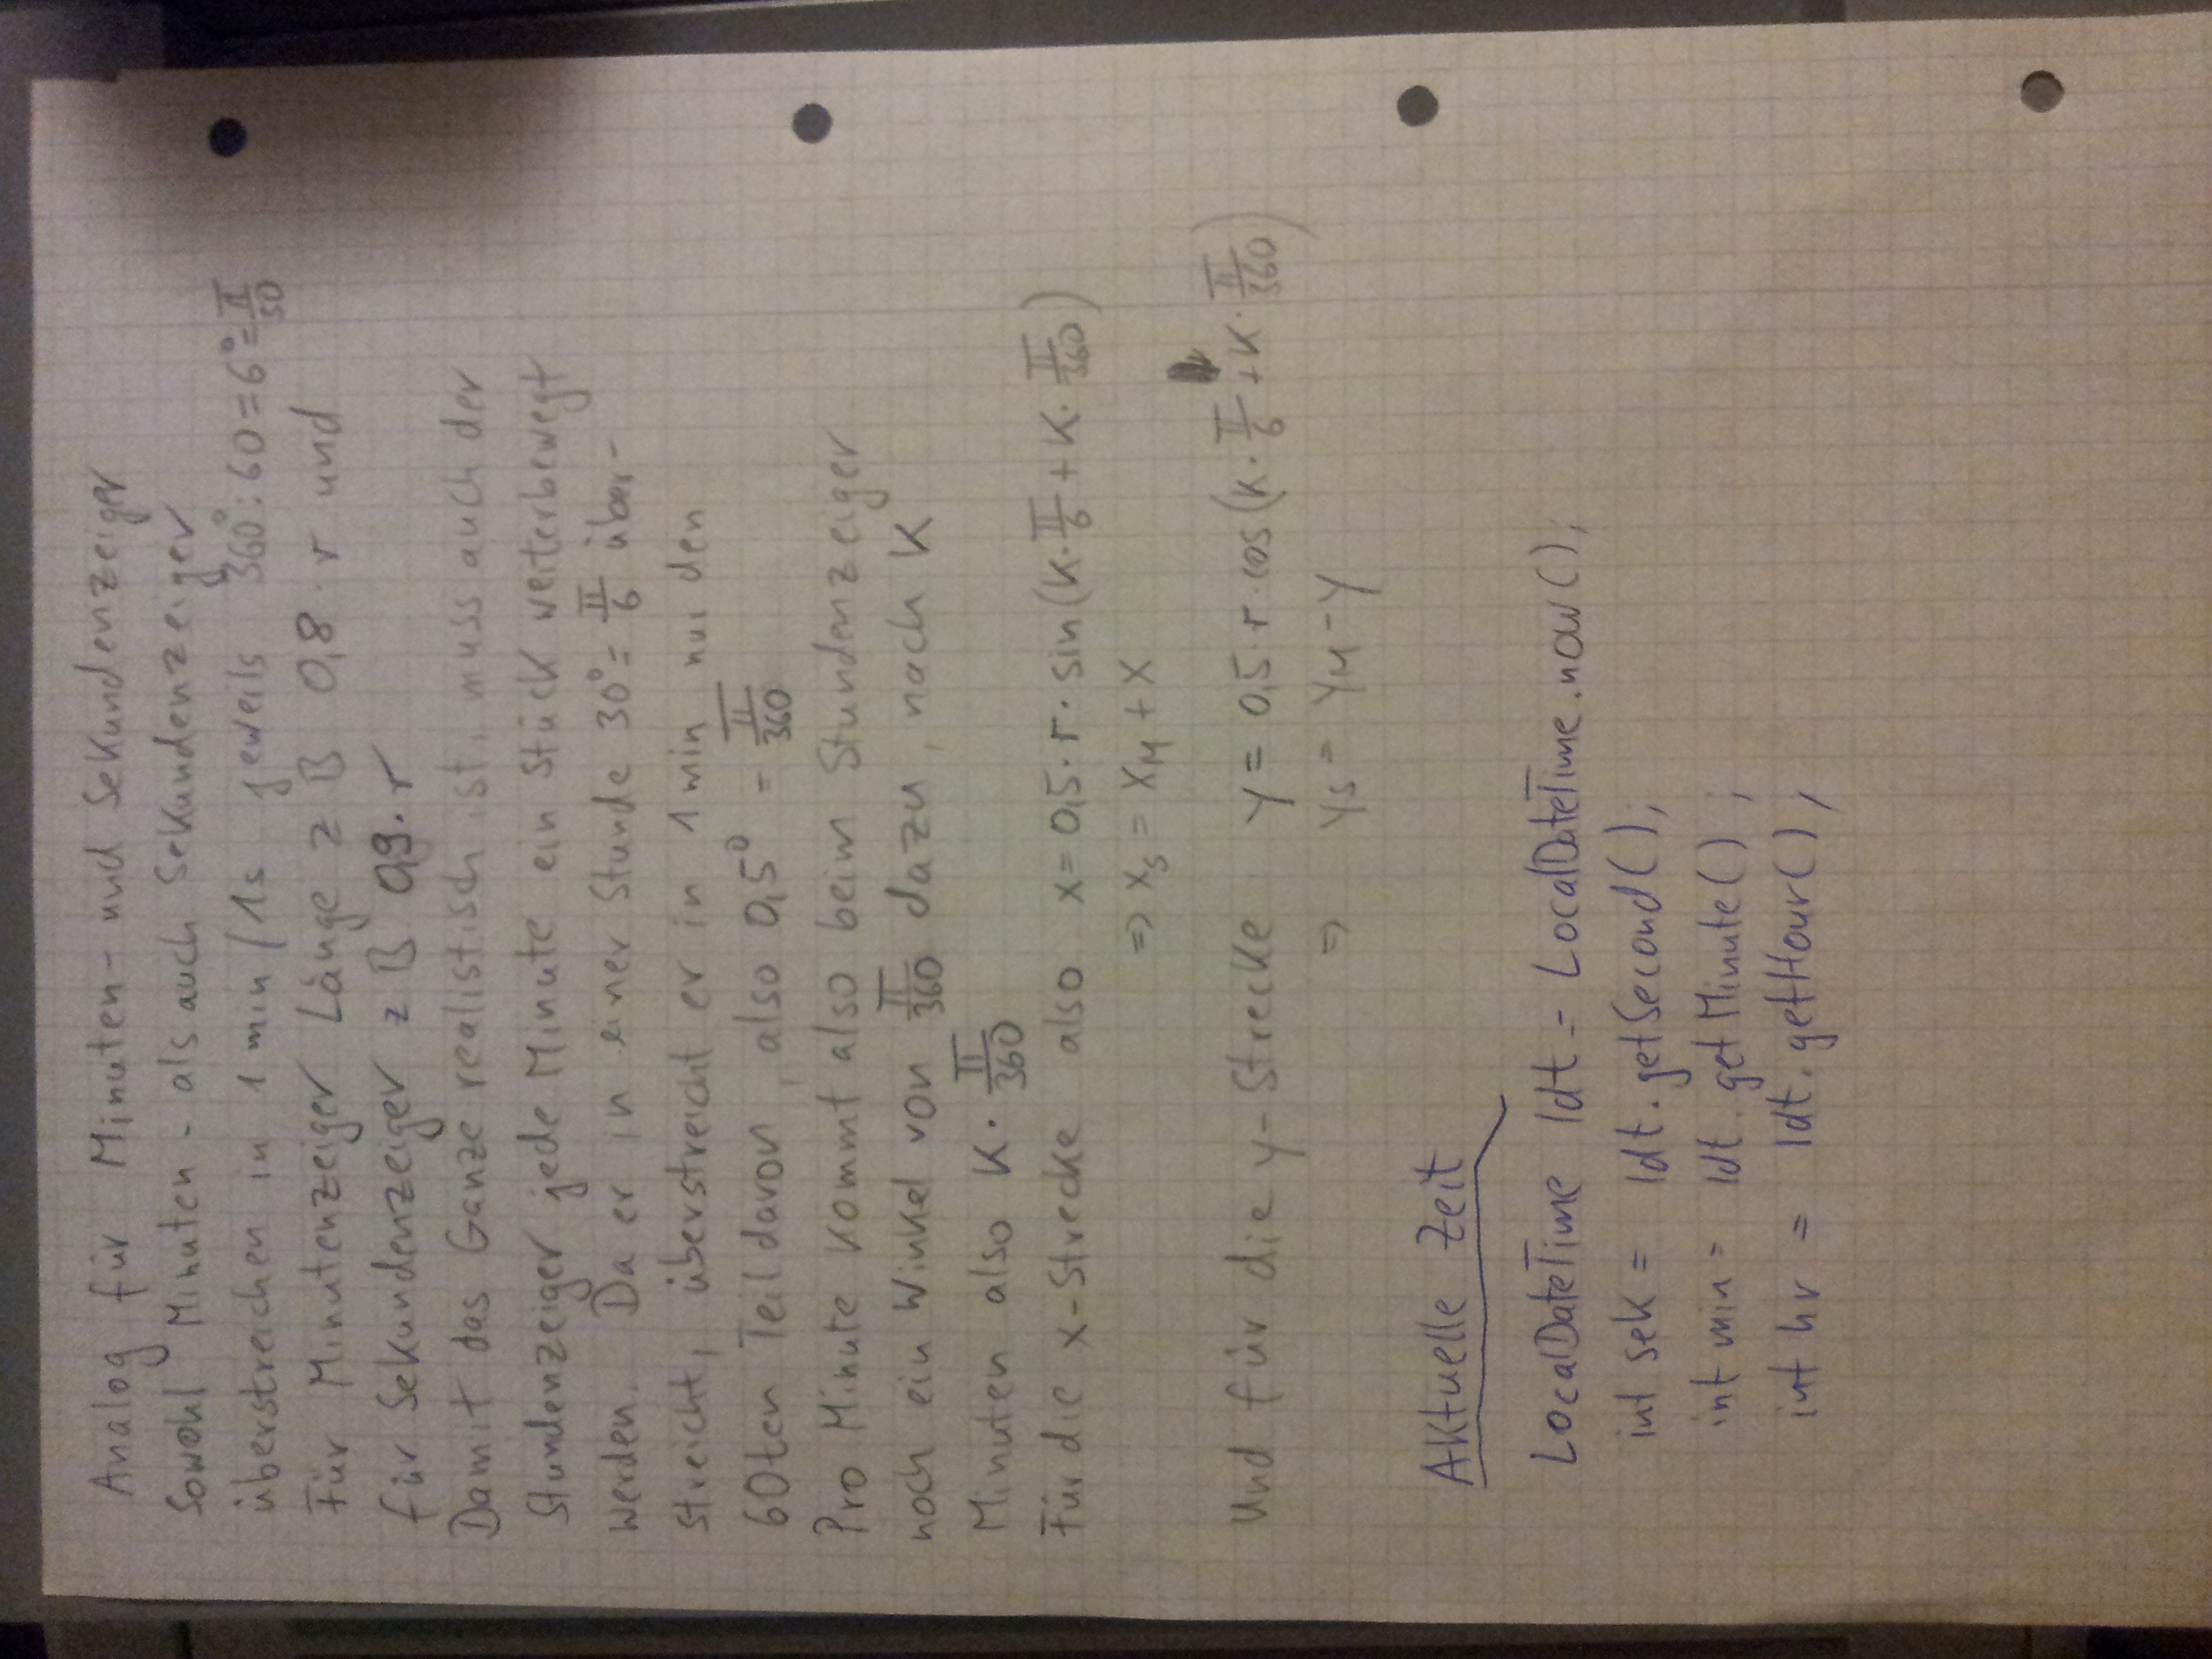 Analog für Minuten- und Sekundenzeiger
Sowohl Minuten- als auch Sekundenzeiger
überstreichen in 1 min/1s jeweils 360°:60=6°=π/30
Für Minutenzeiger Länge z B 0,8·r und
für Sekundenzeiger z B 0,9·r
Damit das Ganze realistisch ist, muss auch der
Stundenzeiger jede Minute ein Stück weiterbewegt
werden. Da er in einer Stunde 30°=π/6 über-
streicht, überstreicht er in 1 min nur den
60ten Teil davon, also 0,5° = π/360
Pro Minute kommt also beim Stundenzeiger
noch ein Winkel von π/360 dazu, nach K
Minuten also K·π/360
Für die x-Strecke also x=0,5·r·sin(K·π/6+K·π/360)
=> xS = xM + x
Und für die y-Strecke y = 0,5·r·cos(K·π/6+K·π/360)
=> yS = yM-y
Aktuelle Zeit
LocalDateTime ldt = LocalDateTime.now();
int sek = ldt.getSecond();
int min = ldt.getMinute();
int hr = ldt.getHour();